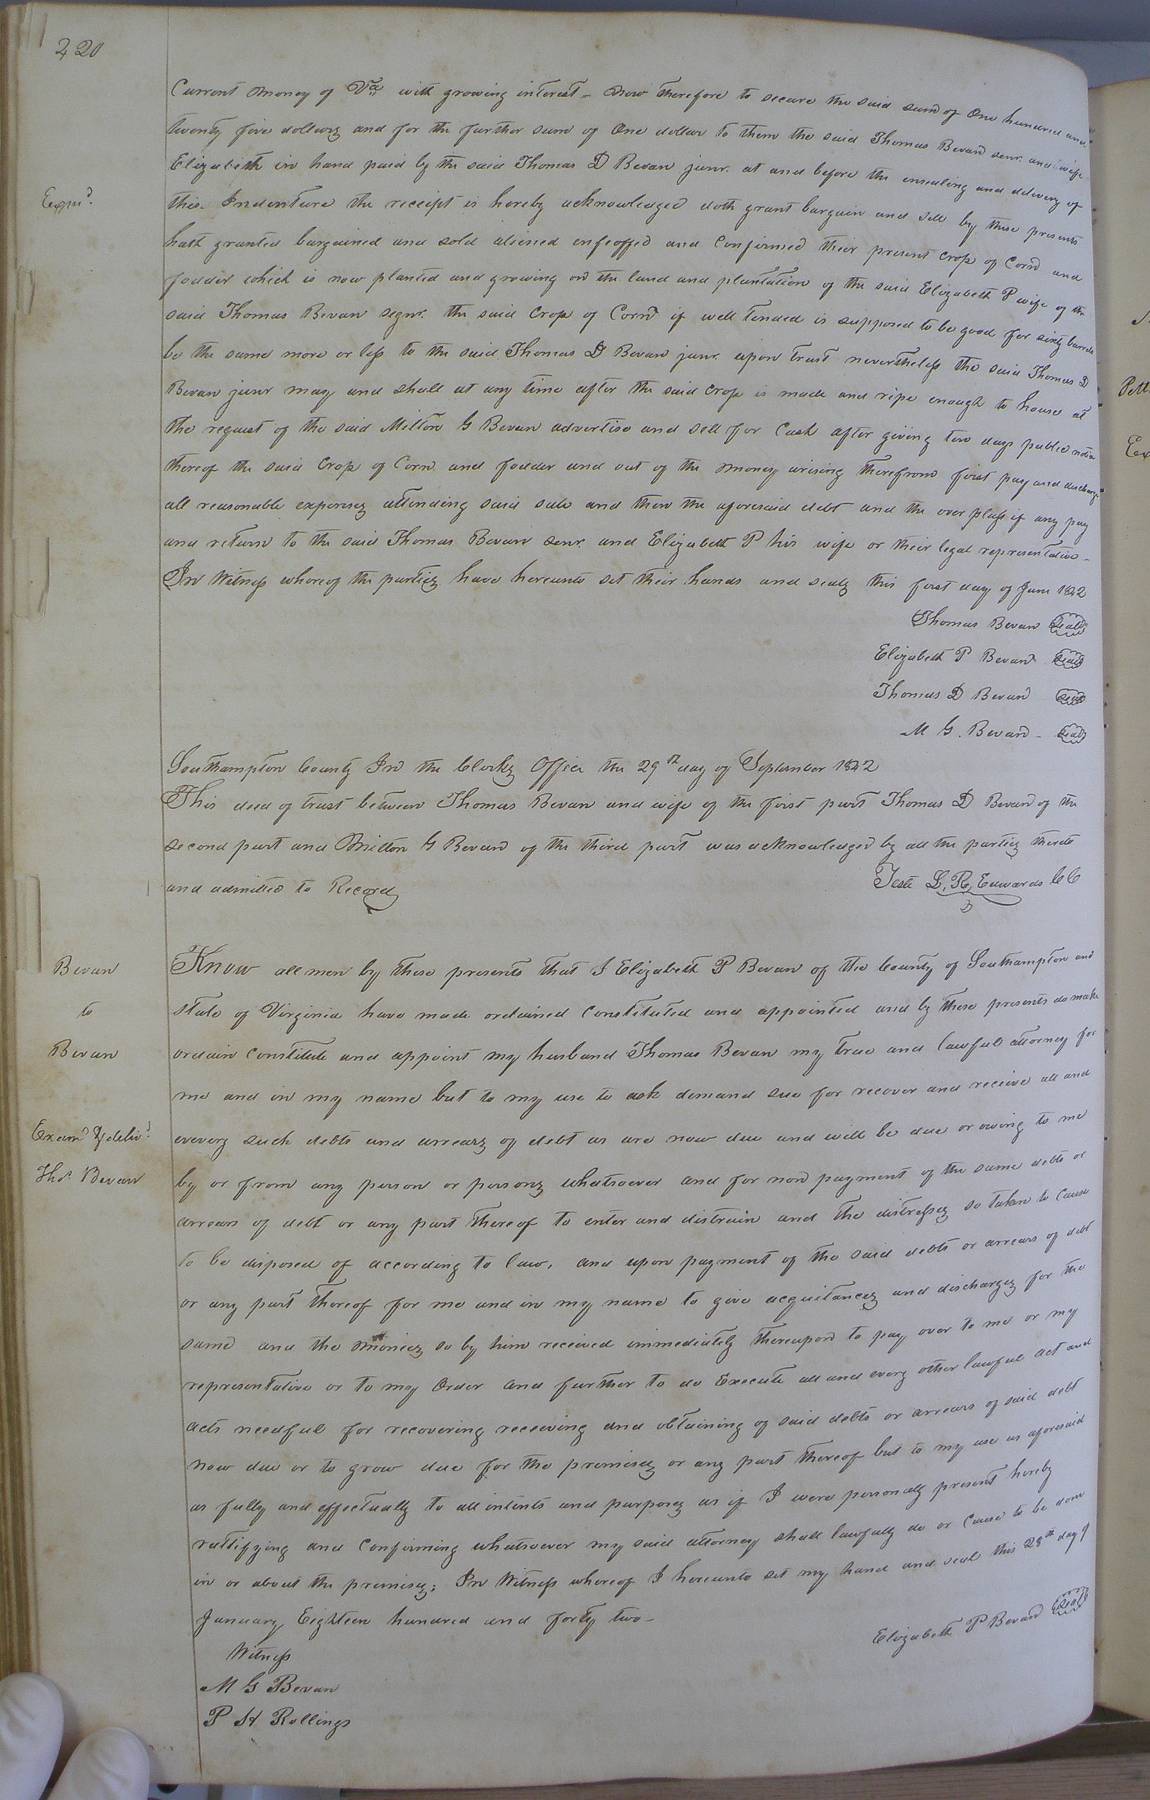 220
Current money of Va with growing interest - Now therefore to secure the said sum of One hundred and
twenty five dollars and for the further sum of One dollar to them the said Thomas Bevan senr. and wife
Elizabeth in hand paid by the said Thomas D Bevan junr. at and before the ensealing and delivery of
Exmd.
this Indenture the receipt is hereby acknowledged doth grant bargain and sell by these presents
hath granted bargained and sold aliened enfeoffed and Confirmed their present crop of Corn and
fodder which is now planted and growing on the land and plantation of the said Elizabeth P wife of the
said Thomas Bevan segnr. the said Crop of Corn if well tended is supposed to be good for sixty barrels
be the same more or less to the said Thomas D Bevan junr. upon trust nevertheless the said Thomas D
Bevan junr may and shall at any time after the said crop is made and ripe enough to house at
the request of the said Milton G Bevan advertise and sell for Cash after giving ten days public notice
thereof the said Crop of Corn and fodder and out of the money arising therefrom first pay and discharge
all reasonable expenses attending said sale and then the aforesaid debt and the over pluss if any pay
and return to the said Thomas Bevan senr. and Elizabeth P his wife or their legal representative -
In Witness whereof the parties have hereunto set their hands and seals this first day of June 1842
Thomas Bevan Seal
Elizabeth P Bevan Seal
Thomas D Bevan Seal
M G. Bevan - Seal
Southampton County In the Clerks Office the 29th day of September 1842
This deed of trust between Thomas Bevan and wife of the first part Thomas D Bevan of the
second part and Milton G Bevan of the third part was acknowledged by all the parties thereto
and admitted to Record
Teste L. R. Edwards CC
Bevan
to
Bevan
Know all men by these presents that I Elizabeth P Bevan of the County of Southampton and
state of Virginia have made ordained Constituted and appointed and by these presents do make
ordain Constitute and appoint my husband Thomas Bevan my true and lawful attorney for
me and in my name but to my use to ask demand sue for recover and receive all and
Examd & delivd.
Thos Bevan
evevery such debts and arrears of debt as are now due and will be due or owing to me
by or from any person or persons whatsoever and for non payment of the same debts or
arrears of debt or any part thereof to enter and distrain and the distresses so taken to cause
to be disposed of according to law, and upon payment of the said debts or arrears of debt
or any part thereof for me and in my name to give acquitances and discharges for the
same and the monies so by him received immediately thereupon to pay over to me or my
representative or to my Order and further to do Execute all and every other lawful act and
acts needful for recovering receiving and obtaining of said debts or arrears of said debt
now due or to grow due for the premises or any part thereof but to my use as aforesaid
as fully and effectually to all intents and purposes as if I were personally present hereby
rattifying and confirming whatsoever my said attorney shall lawfully do or cause to be done
in or about the premises; In Witness whereof I hereunto set my hand and seal this 28th day of
January, Eighteen hundred and forty two -
Elizabeth P Bevan Seal
Witness
M G Bevan
P H Rollings